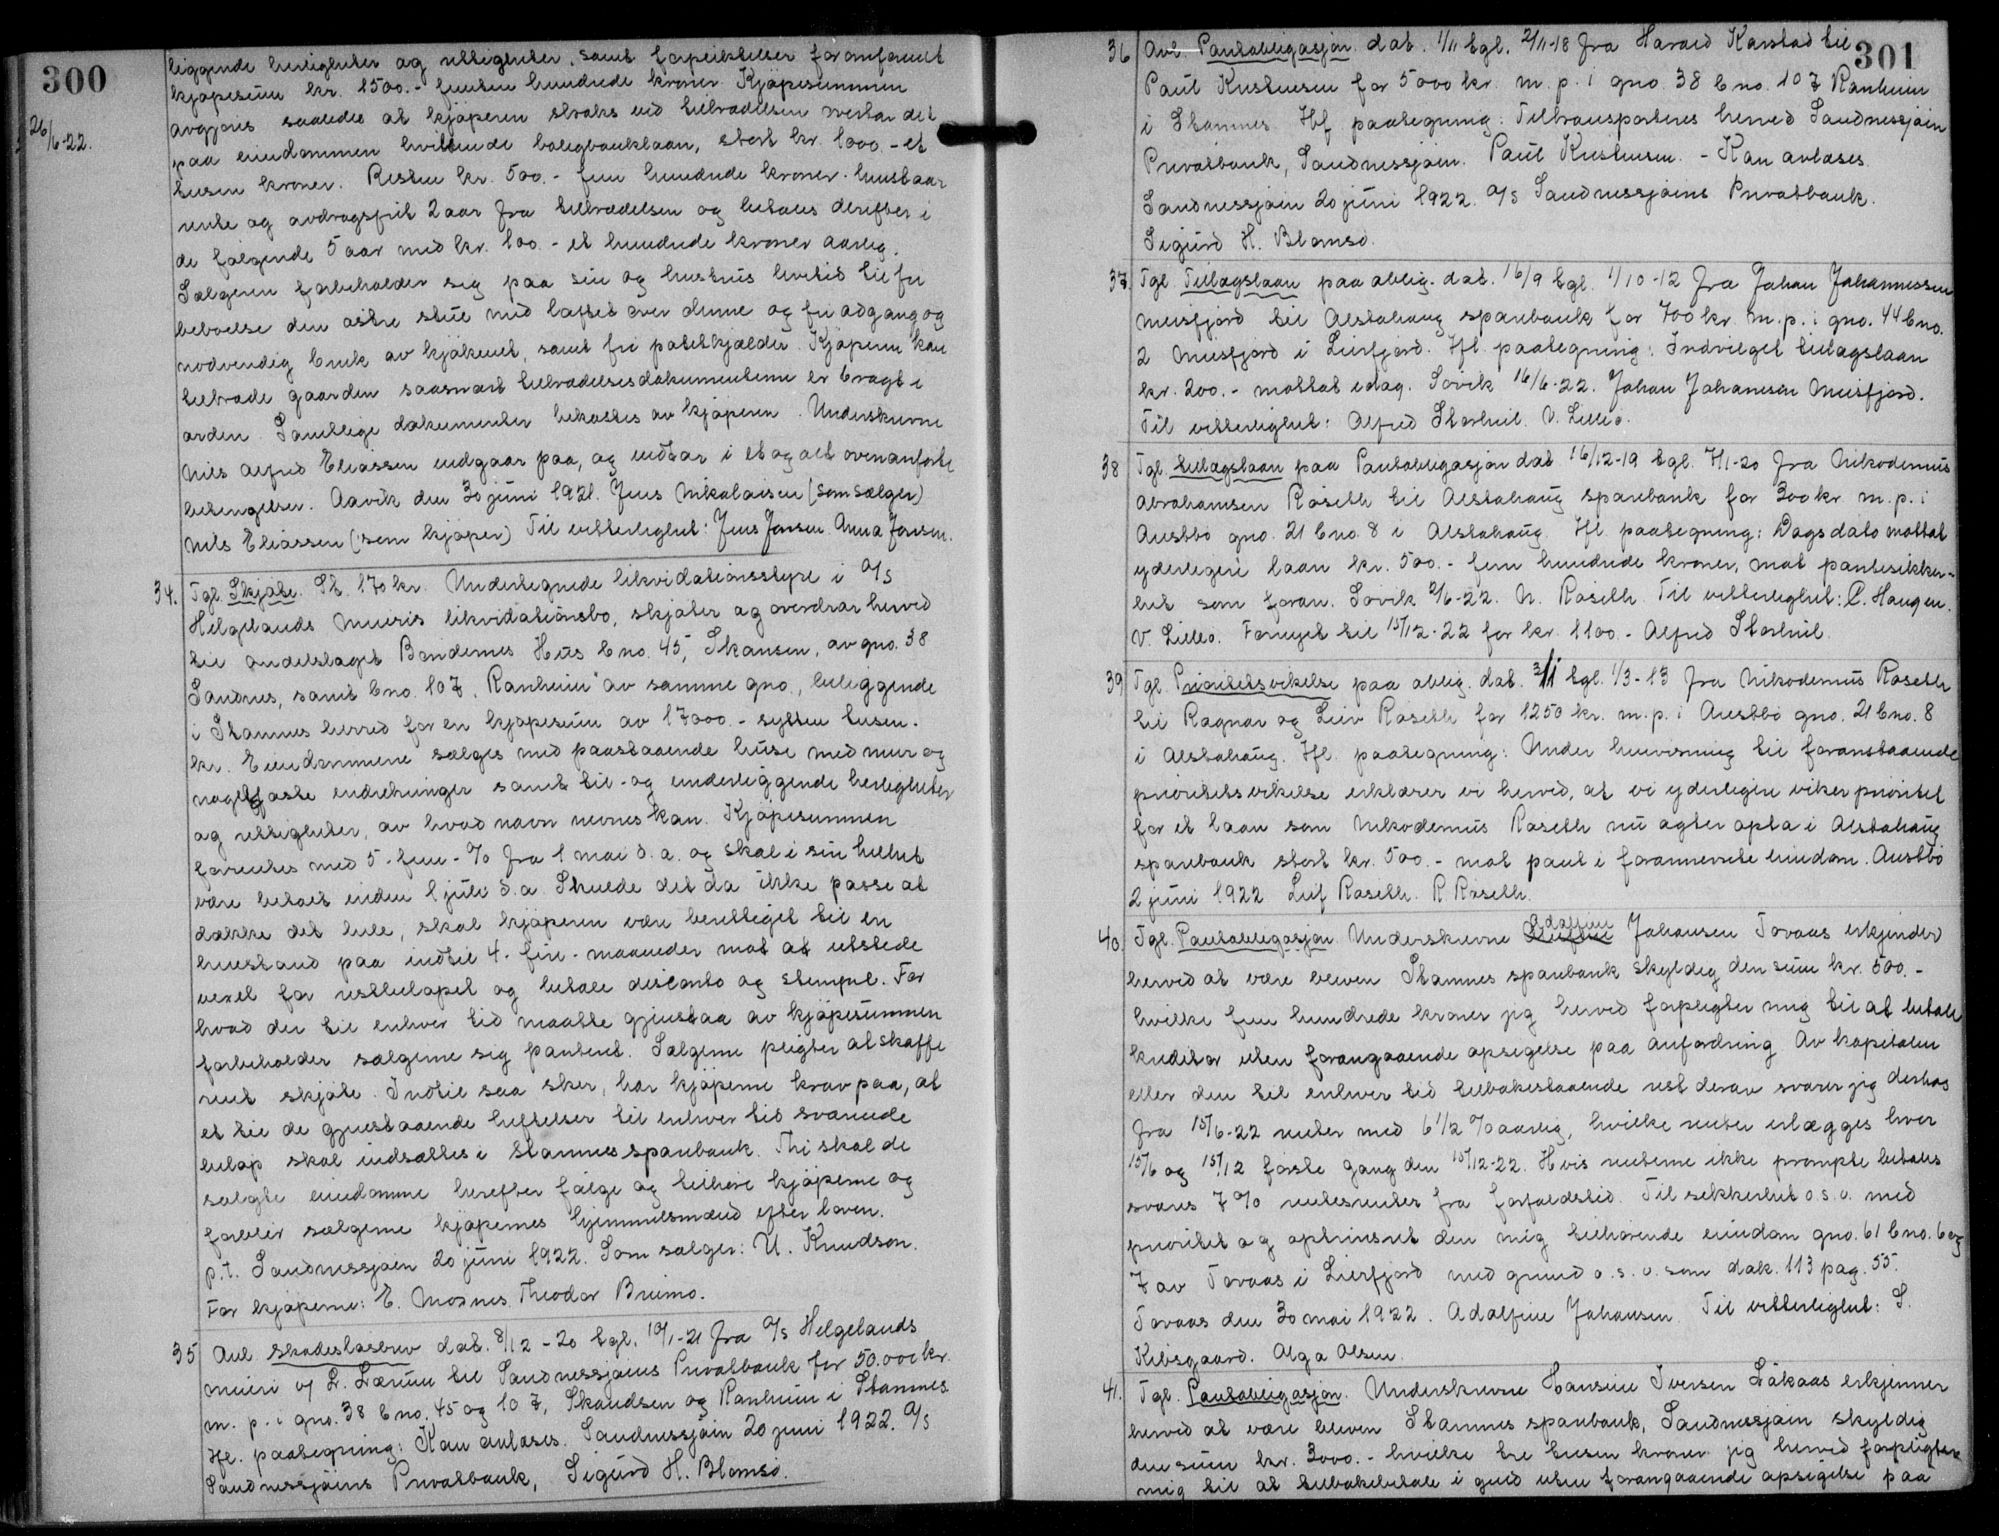 300
26/6-22.
liggende herligheter og rettigheter, samt forpliktelser for omforenet
kjøpesum kr. 1500.- femten hundrede kroner. Kjøpesummen
avgjøres saaledes at kjøperen straks ved tiltrædelsen overtar det
paa eiendommen hvilende boligbanklaan, stort kr. 1000.- et
tusen kroner. Resten kr. 500.- fem hundrede kroner henstaar
rente og avdragsfrit 2 aar fra tiltrædelsen og betales derefter i
de følgende 5 aar med kr. 100.- et hundrede kroner aarlig.
Sælgeren forbeholder sig paa sin og hustrus levetid til fri
beboelse den østre stue med loftet over denne og fri adgang og
nødvendig bruk av kjøkenet, samt fri potetkjælder. Kjøperen kan
tiltræde gaarden saasnart tiltrædelsesdokumenterne er bragt i
orden. Samtlige dokumenter bekostes av kjøperen. Underskrevne
Nils Alfred Eliassen indgaar paa, og vedtar i et og alt ovenanførte
betingelser. Aavik den 30 juni 1921. Jens Nikolaisen (som sælger)
Nils Eliassen (som kjøper) Til vitterlighet: Jens Jensen. Anna Jensen.
34. Tgl. Skjøte. St. 170 kr. Undertegnede likvidationsstyre i A/S
Helgelands Meieris likvidationsbo, skjøter og overdrar herved
til andelslaget Bøndernes Hus bno. 45, Skansen, av gno. 38
Sandnes, samt bno. 107, Ranheim" av samme gno., beliggende
i Stamnes herred for en kjøpesum av 17000.- sytten tusen.
kr. Eiendommene sælges med paastaaende huse med mur og
nagelfaste indretninger samt til- og underliggende herligheter
og rettigheter, av hvad navn nevnes kan. Kjøpesummen
forrentes med 5.-fem-% fra 1 mai d.a. og skal i sin helhet
være betalt inden 1 juli d.a. Skulde det da ikke passe at
dække det hele, skal kjøperen være berettiget til en
henstand paa indtil 4-fire-maaneder mot at utstede
vexel for restbeløpet og betale disconto og stempel. For
hvad der til enhver tid maatte gjenstaa av kjøpesummen
forbeholder sælgerne sig panteret. Sælgerne pligter at skaffe
rent skjøte. Indtil saa sker, har kjøperne krav paa, at
et til de gjenstaaende heftelser til enhver tid svarende
beløp skal indsættes i Stamnes sparebank. Thi skal de
solgte eiendomme herefter følge og tilhøre kjøperne og
forblir sælgerne kjøpernes hjemmelsmænd efter loven.
p.t. Sandnessjøen 20 juni 1922. Som sælger: U. Knudsen.
For kjøperne: E. Mosnes. Theodor Breimo.
35 Avl. Skadesløsbrev dat. 8/12-20 tgl. 10/1-21 fra A/S Helgelands
meieri v/ L. Lærum til Sandnessjøens Privatbank for 50.000 kr.
m. p. i gno. 38 bno. 45 og 107, Skandsen og Ranheim i Stamnes.
Hf. paategning: Kan avlæses. Sandnessjøen 20 juni 1922. A/S
Sandnessjøens Privatbank, Sigurd H. Blomsø.
301
36 Avl. Panteobligasjon dat. 1/11 tgl. 2/11-18 fra Harald Karstad til
Paul Kristensen for 5000 kr. m. p. i gno. 38 bno. 107 Ranheim
i Stamnes. Hf. paategning: Tiltransporteres herved Sandnessjøen
Privatbank, Sandnessjøen. Paul Kristensen. - Kan avlæses.
Sandnessjøen 20 juni 1922. A/S Sandnessjøens Privatbank.
Sigurd H. Blomsø.
37. Tgl. Tillægslaan paa oblig. dat. 16/9 tgl. 1/10-12 fra Johan Johannessen
Meisfjord til Alstahaug sparebank for 700 kr. m. p. i gno. 44 bno.
2 Meisfjord i Leirfjord. Hf. paategning: Indvilget tillægslaan
kr. 200.- mottat idag. Søvik 16/6-22. Johan Johansen Meisfjord.
Til vitterlighet: Alfred Storheil. V. Lilleø.
38 Tgl. tillægslaan paa Panteobligasjon dat 16/12-19 tgl. 7/1-20 fra Nikodemus
Abrahamsen Røseth til Alstahaug sparebank for 300 kr. m. p. i
Austbø gno. 21 bno. 8 i Alstahaug. Hf. paategning: Dags dato mottat
yderligere laan kr. 500.- fem hundrede kroner, mot pantesikker-
het som foran. Søvik 2/6-22. N. Røseth. Til vitterlighet: P. Haugen.
V. Lilleø. Fornyet til 15/12-22 for kr. 1100.- Alfred Storheil.
39 Tgl. Prioritetsvikelse paa oblig. dat. 3/1 tgl. 1/3-13 fra Nikodemus Røseth
til Ragnar og Leiv Røseth for 1250 kr. m. p. i Austbø gno. 21 bno. 8
i Alstahaug. Hf. paategning: Under henvisning til foranstaaende
prioritetsvikelse erklærer vi herved, at vi yderligere viker prioritet
for et laan som Nikodemus Røseth nu agter opta i Alstahaug
sparebank stort kr. 500.- mot pant i forannevnte eiendom. Austbø
2 juni 1922 Leif Røseth. R Røseth.
40. Tgl. Panteobligasjon. Underskrevne Adolfine Johansen Toraas erkjender
herved at være bleven Stamnes sparebank skyldig den sum kr. 500.-
hvilke fem hundrede kroner jeg herved forpligter mig til at betale
kreditor uten forangaaende opsigelse paa anfordring. Av kapitalen
eller den til enhver tid tilbakestaaende rest derav svarer jeg derhos
fra 15/6-22 renter med 6 1/2 % aarlig, hvilke renter erlægges hver
15/6 og 15/12 første gang den 15/12-22. Hvis renterne ikke prompte betales
svares 7 % rentesrenter fra forfaldstid. Til sikkerhet o.s.v. med
prioritet og optrinsret den mig tilhørende eiendom gno. 61 bno. 6 og
7 av Toraas i Leirfjord med grund o.s.v. som dok. 113 pag. 55.
Toraas den 30 mai 1922. Adolfine Johansen. Til vitterlighet: S.
Kibsgaard. Olga Olsen.
41. Tgl. Panteobligasjon. Underskrevne Hansine Iversen Låkaas erkjenner
herved at være bleven Stamnes sparebank, Sandnessjøen skyldig
den sum kr. 3000.- hvilke tre tusen kroner jeg herved forpligter
mig til at tilbakebetale i guld uten forangaaende opsigelse paa